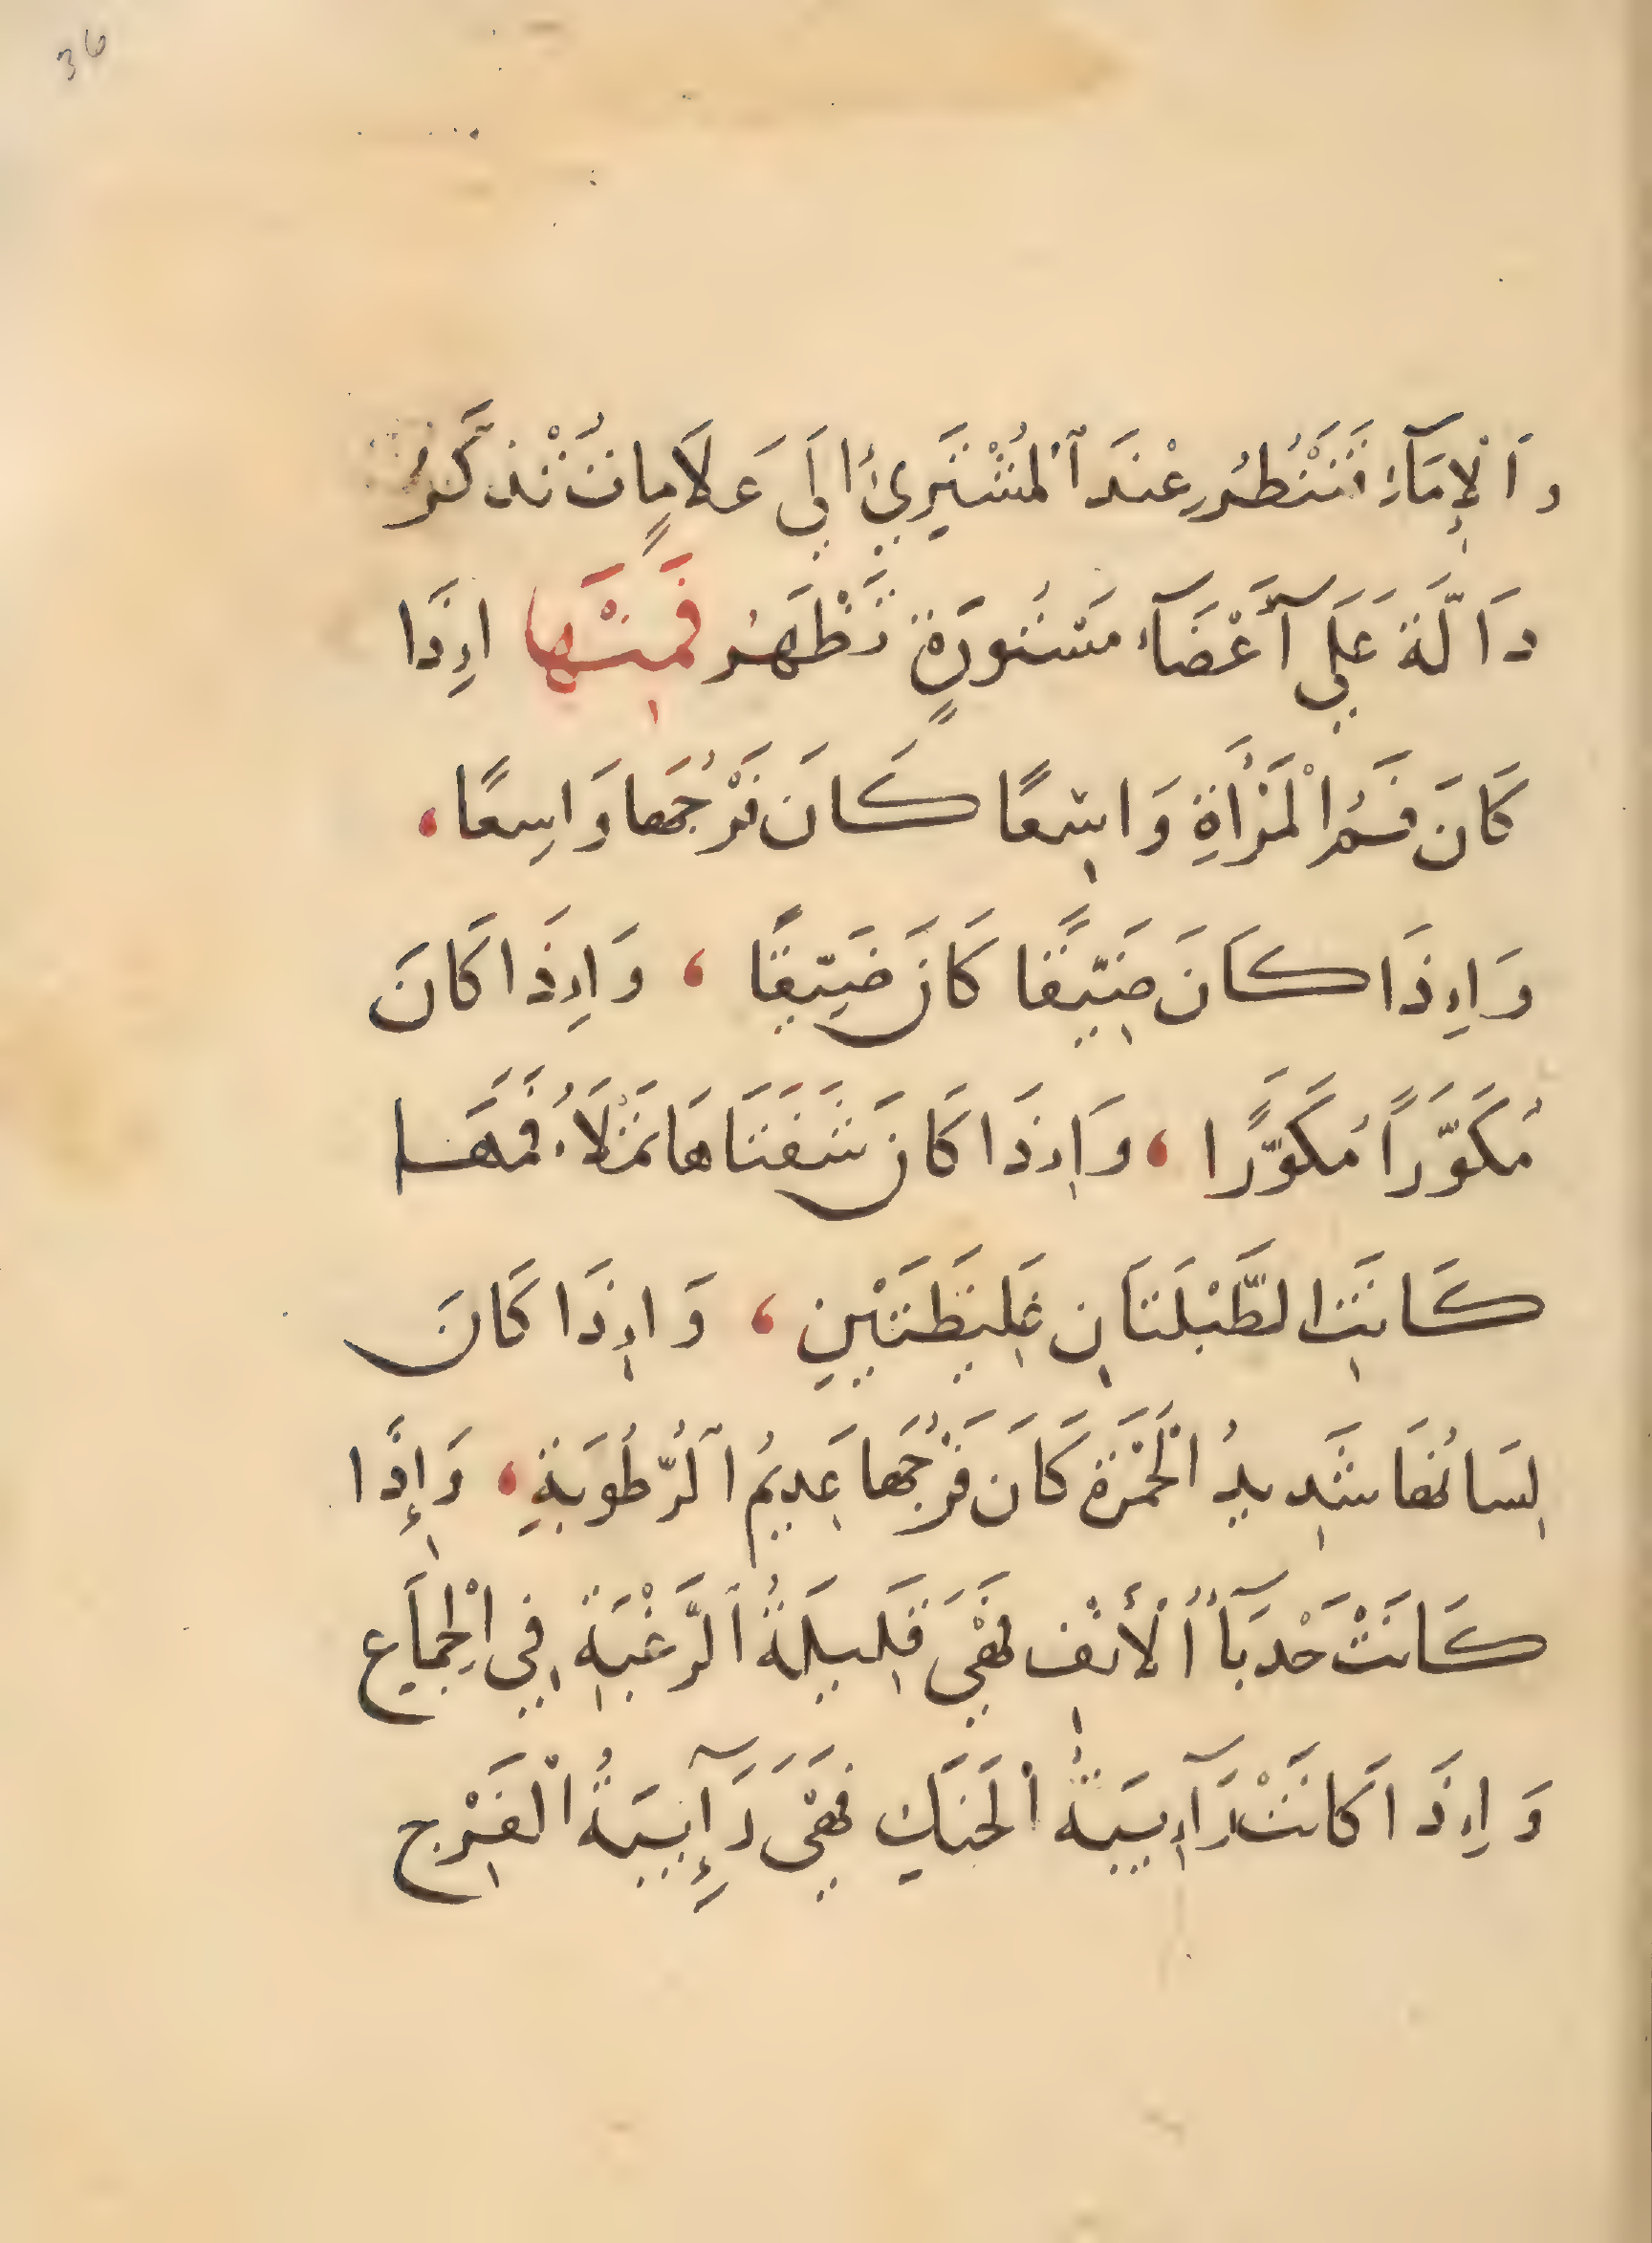 36
وَالْإِمَآءِ فَتَنْظُرُ عِنْدَ ٱلْمُشْتَرِئُ اِلَي عَلَامَاتٍ تُذْكَرُ
دَالَّةَ عَلَي آَعْضَآءِ مَسْتُورَةٍ تَظْهَرُ فَمِنْهَا اِذَا
كَانَ فَمُ الْمَرْأَةِ وَاسِعًا كَانَ فَرْجُهَا وَاسِعًا،
وَاِذَا كَانَ ضَيِّقًا كَانَ ضَيِّقًا ، وَاِذَا كَانَ
مُكَوَّرَاً مُكَوَّرًا ، وَاِذَا كَانَ شَفَتَاهَا تَمْلَأُ فَمَهَا
كَانَتِ الطَّبْلَتَانِ غَلِيظَتَيْنِ ، وَاِذَا كَانَ
لِسَانُهَا شَدِيدُ الْحَمْرَة كَانَ فَرْجُهَا عَدِيمُ ٱلرُّطُوبَةِ ، وَإِذَا
كَانَتْ حَدْبَآُٔ اْلْأَنْفِ فَهْيَ قَلِيلَةُ ٱلرَّغْبَةِ فِي الْجِمَاعِ
وَاِذَا كَانَتْ رَآءِيبَةُ الْحَنَكِ فَهْيَ رَآئِيبَةُ الْفَرْجِ